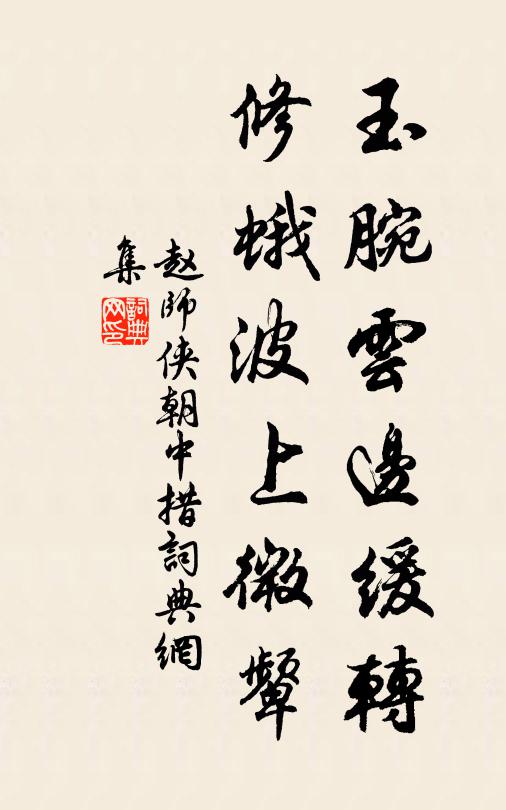 玉腕雲邊緩轉
修蛾波上微顰
赵師侠朝中措詞典網
集
詞典
网印